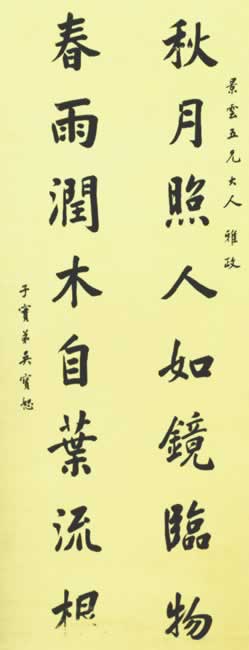 景雲五兄大人雅政
秋月照人如鏡臨物
春雨潤木自葉流根
子實弟吳寶恕